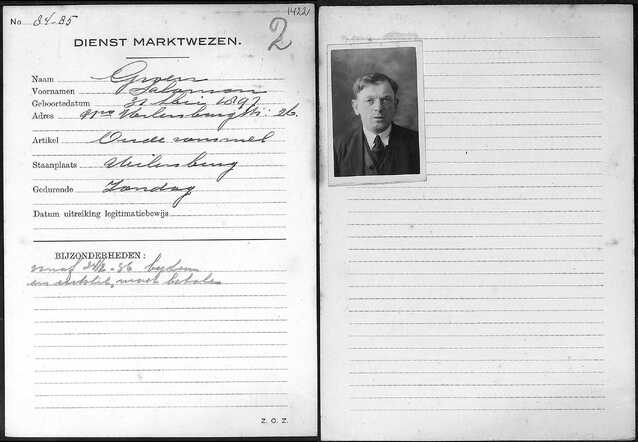 No. 84-85
1422
2
DIENST MARKTWEZEN.
Naam Groen
Voornamen Salomon
Geboortedatum 31 Mei 1897
Adres Uilenburgstr. 26
Artikel Oude rommel
Staanplaats Uilenburg
Gedurende Zondag
Datum uitreiking legitimatiebewijs
BIJZONDERHEDEN:
vanaf
en moet betalen
Z. O. Z.